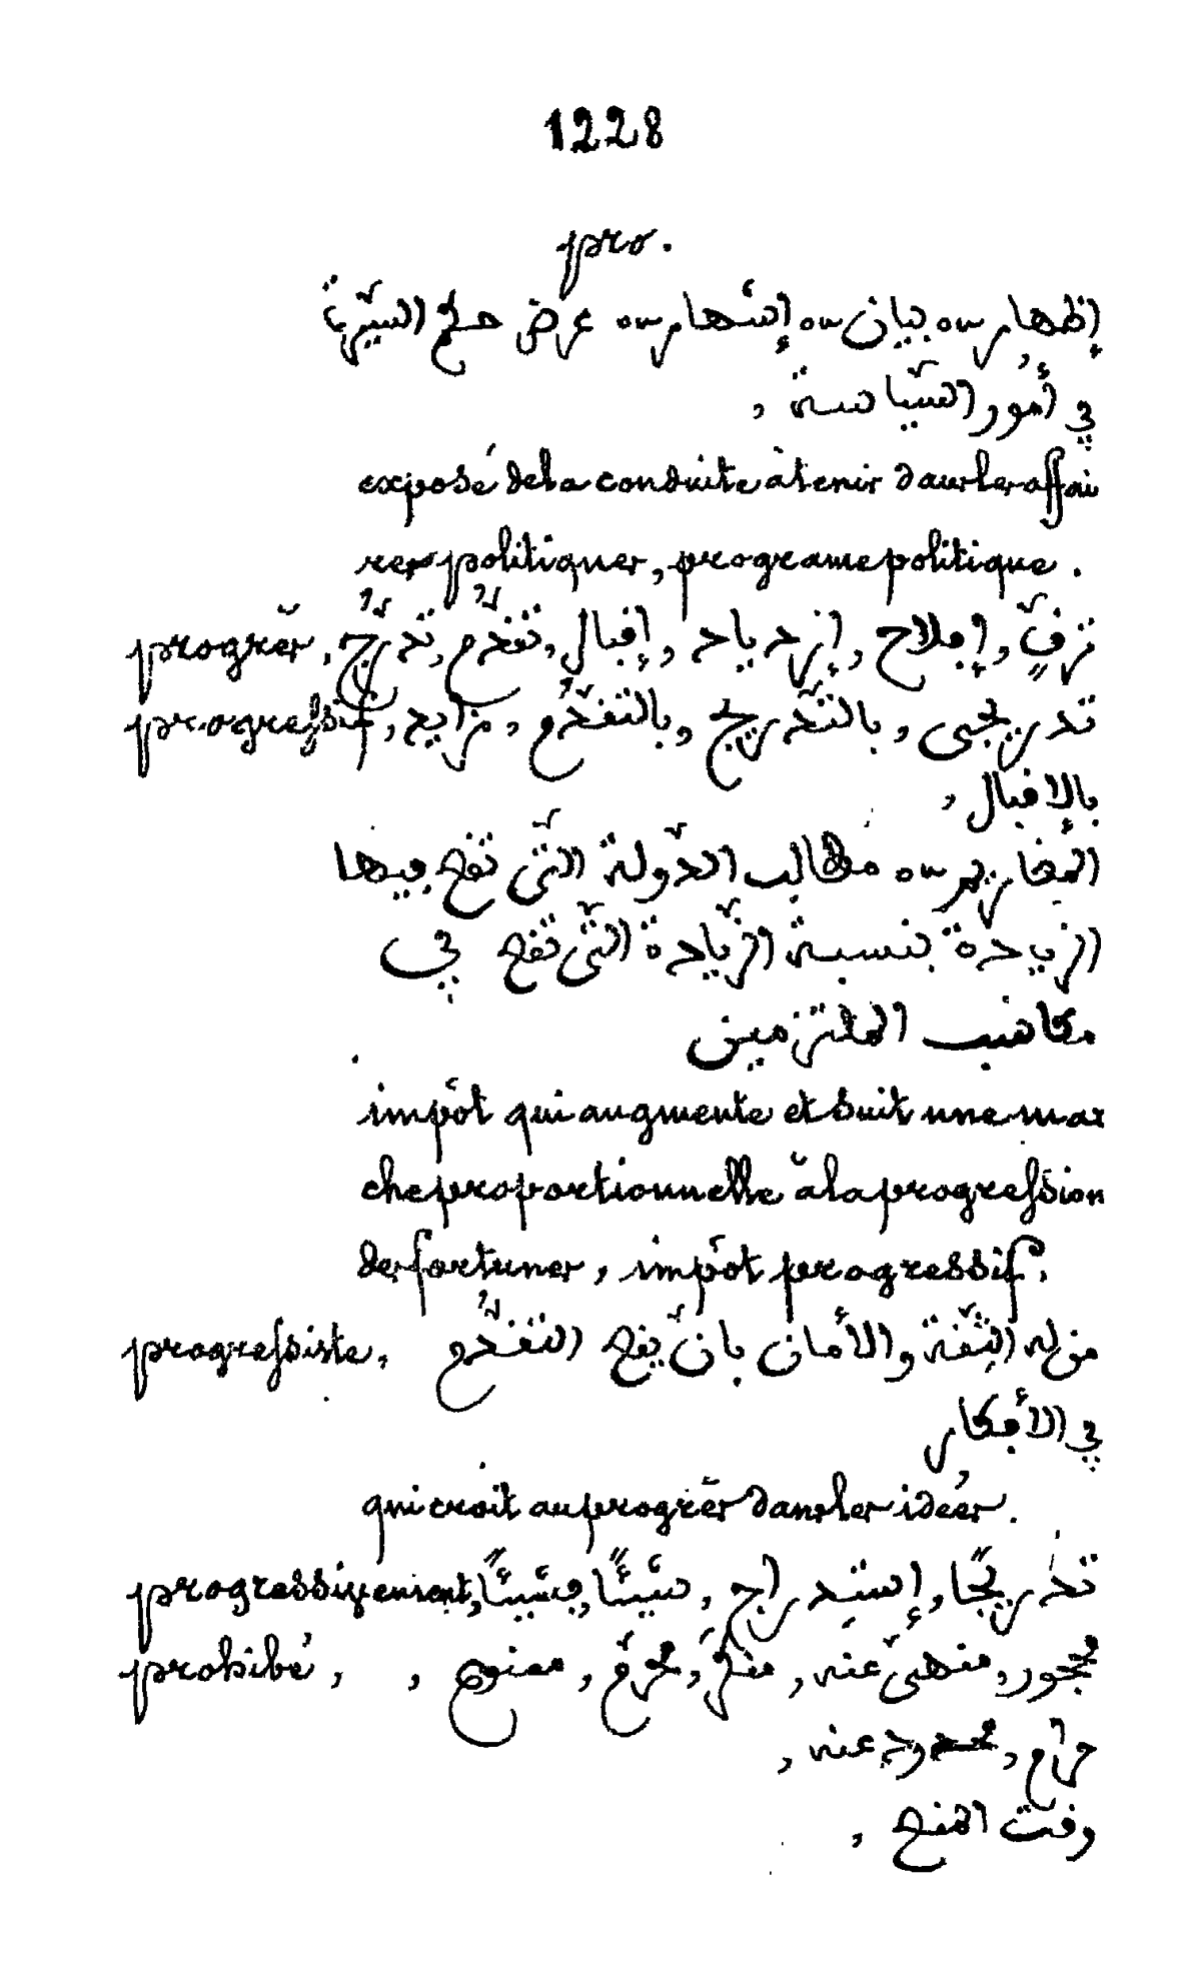 1228
pro.
إظهار ou بيان ou إشهار ou عرض على السّيرة
في أمور السّياسة ,
exposé de la conduite à tenir dans les affai
res politiques, programe politique.
progrès, ترقّي, إفلاح, إزدياد, إقبال, تقدّم, تدرّج
progressif, تدريجي, بالتّدريج, بالتقدّم, مزايد
بالإقبال ,
المغارم ou مطالب الدّولة الّتي تقع فيها
الزيادة بنسبة الزّيادة الّتي تقع في
مكاسب الملتزمين
impôt qui augmente et suit une mar
che proportionnelle à la progression
des fortunes, impôt progressif.
progressiste, من له الثّقة والأمان بانّ يقع التقدّم
في الأفكار
qui croit au progrès dans les idées.
progressivement, تدريجًا, إستدراج, شيئًا فشيئًا
prohibé, محجور, منهى عنه, منكّر, محرّم, ممنوع,
حرام, محدود عنه,
وقت المنع ,